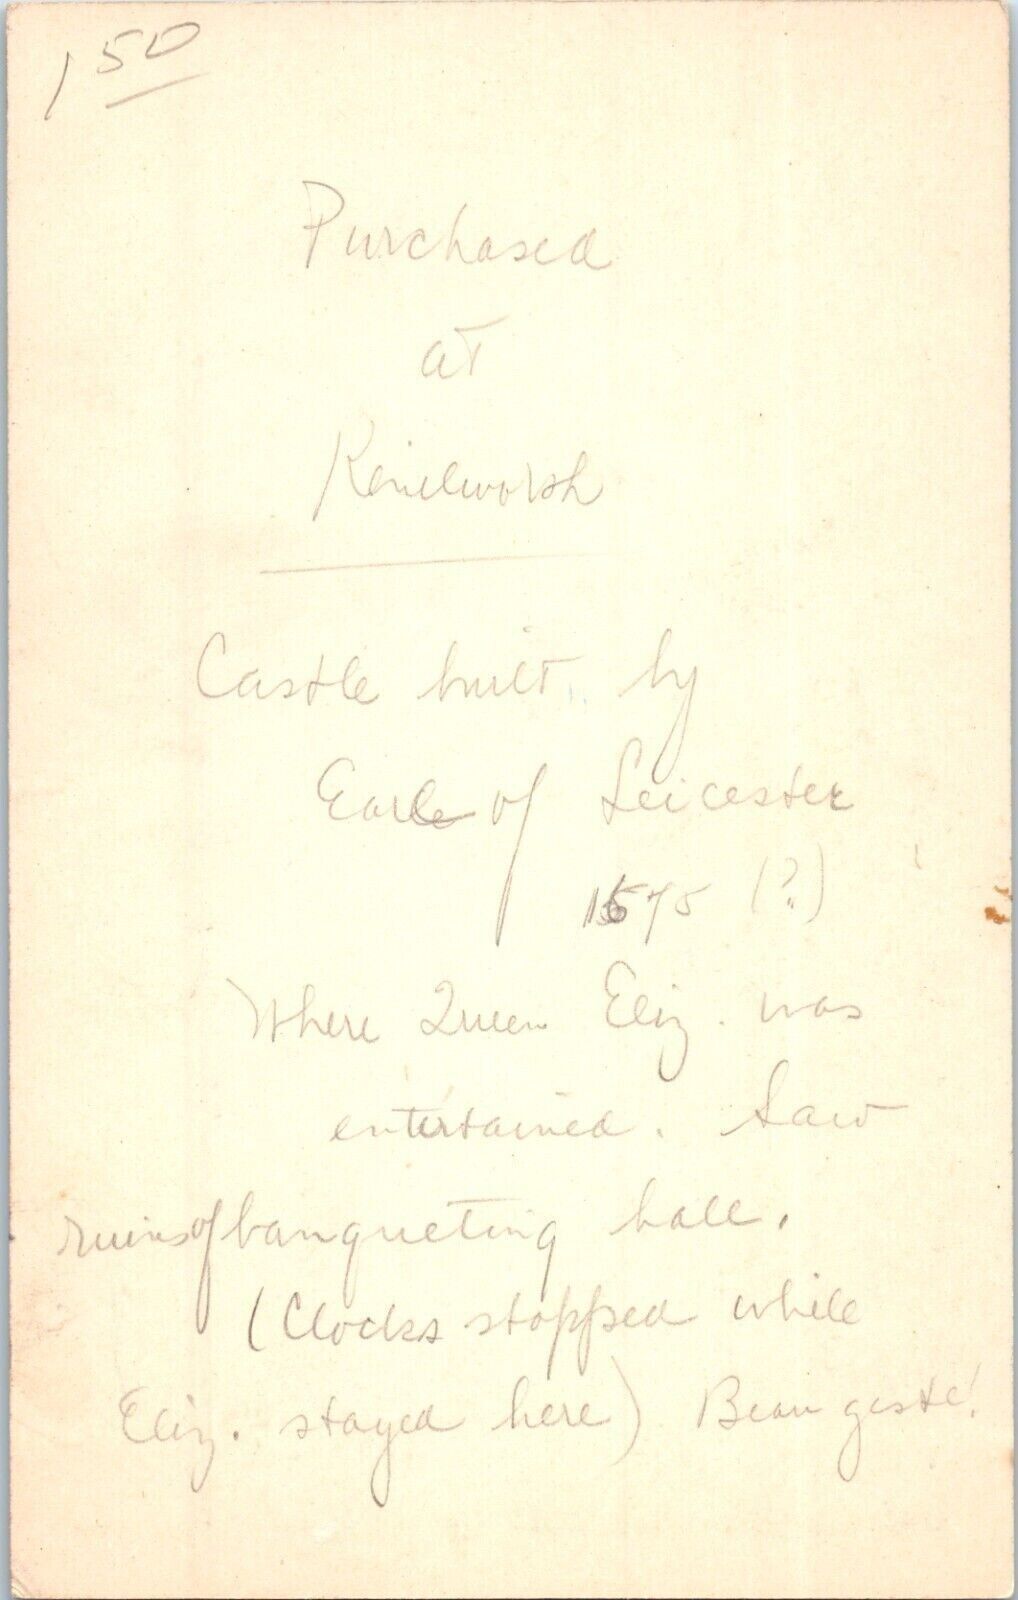 1 50
Purchased
at
Kenilworth
Castle built by
Earle of Leicester
1575 (?)
Where Queen Eliz. was
entertained. Saw
ruins of banqueting hall.
(Clocks stopped while
Eliz. stayed here) Beau geste!